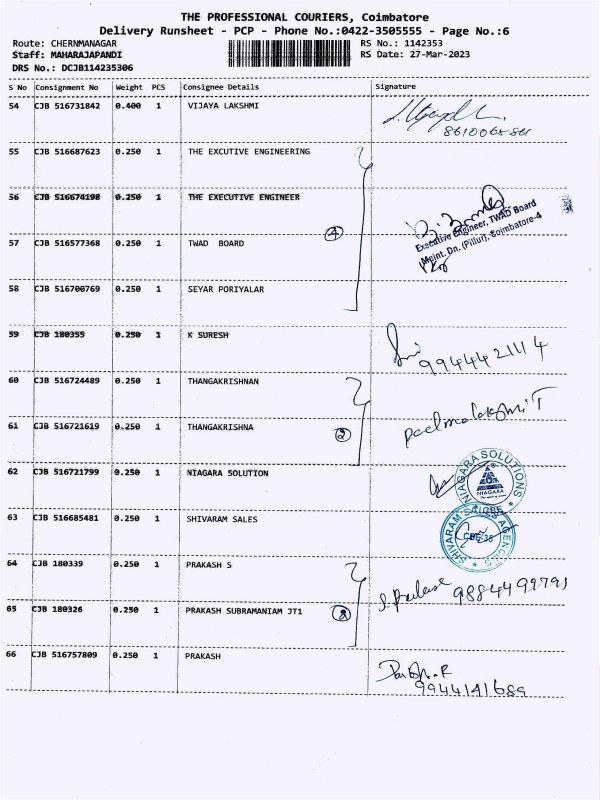 THE PROFESSIONAL COURIERS, Coimbatore
Delivery Runsheet - PCP - Phone No.:0422-3505555 - Page No.:6
Route: CHERNMANAGAR RS No.: 1142353
Staff: MAHARAJAPANDI RS Date: 27-Mar-2023
DRS No.: DCJB114235306
S No Consignment No Weight PCS Consignee Details Signature
54 CJB 516731842 0.400 1 VIJAYA LAKSHMI
55 CJB 516687623 0.250 1 THE EXCUTIVE ENGINEERING
56 CJB 516674198 0.250 1 THE EXECUTIVE ENGINEER
Executive Engineer, TWAD Board
Maint. Dn. (Pillur), Coimbatore-4
4
57 CJB 516577368 0.250 1 TWAD BOARD
58 CJB 516700769 0.250 1 SEYAR PORIYALAR
59 CJB 180355 0.250 1 K SURESH
9944421114
60 CJB 516724489 0.250 1 THANGAKRISHNAN
61 CJB 516721619 0.250 1 THANGAKRISHNA
2
62 CJB 516721799 0.250 1 NIAGARA SOLUTION
NIAGARA SOLUTIONS
NIAGARA
63 CJB 516685481 0.250 1 SHIVARAM SALES
SHIVARAM SALES AGENCIES
64 CJB 180339 0.250 1 PRAKASH S
65 CJB 180326 0.250 1 PRAKASH SUBRAMANIAM JT1
2
66 CJB 516757809 0.250 1 PRAKASH
9944141689